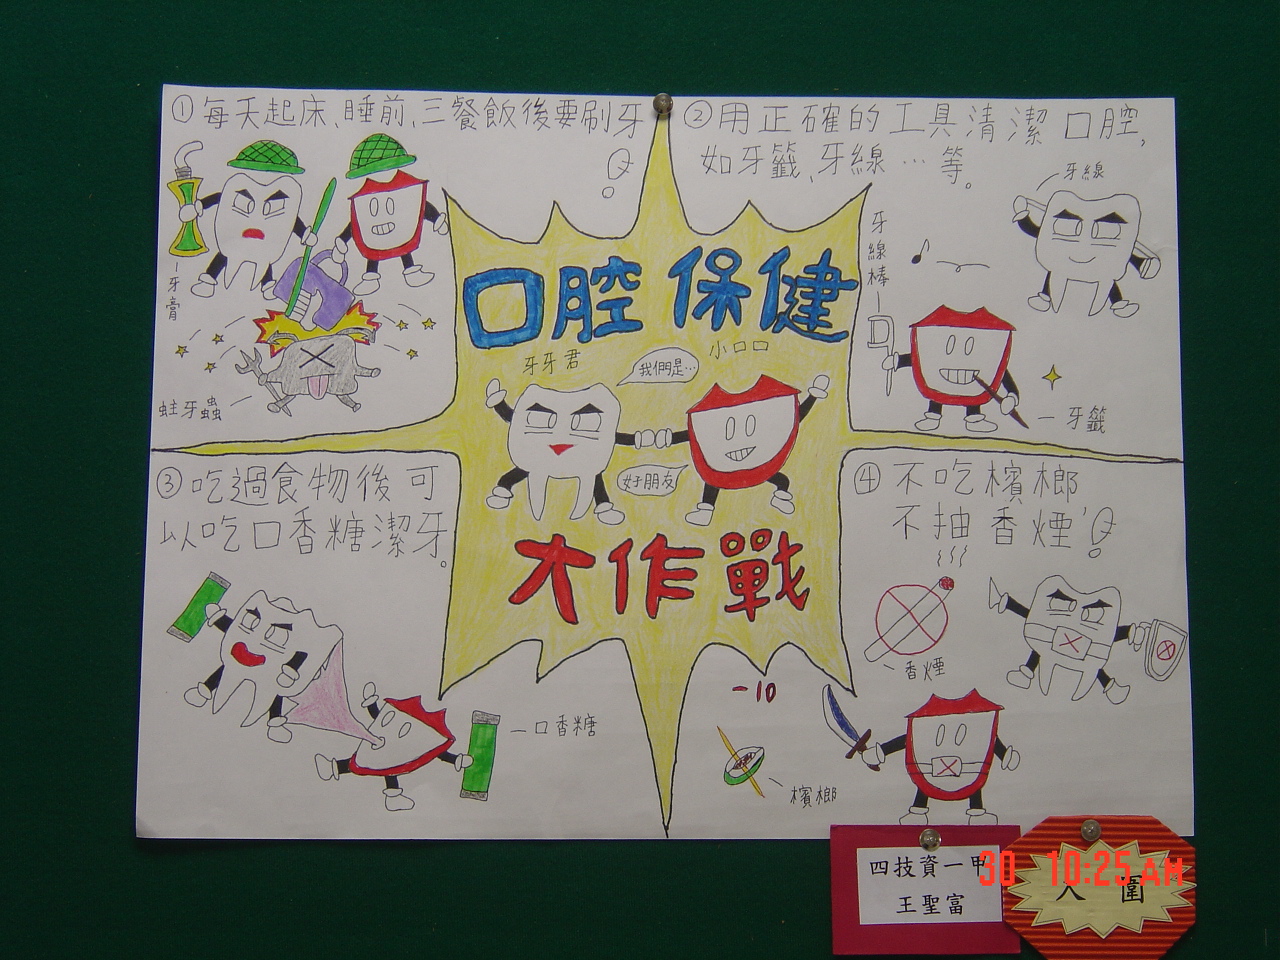 ①每天起床、睡前、三餐飯後要刷牙
牙膏
蛀牙蟲
②用正確的工具清潔口腔,
如牙籤、牙線…等。
牙線
牙線棒
牙籤
口腔保健
牙牙君
小口口
我們是…
好朋友
大作戰
③吃過食物後可
以吃口香糖潔牙。
口香糖
④不吃檳榔
不抽香煙,
香煙
-10
檳榔
四技資一甲
王聖富
入圍
30 10:25AM